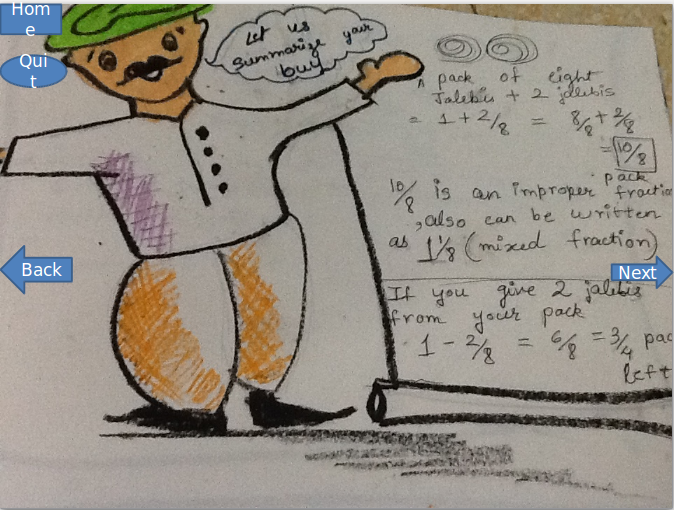 Home
Quit
Let us
summarize your
buy
A pack of eight
Jalebis + 2 jalebis
= 1 + 2/8 = 8/8 + 2/8
= 10/8
pack
10/8 is an improper fractio
, also can be written
as 1 1/8 (mixed fraction)
Back
Next
If you give 2 jalebis
from your pack
1 - 2/8 = 6/8 = 3/4 pac
left